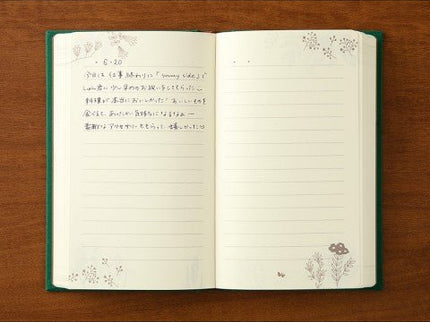 ・6・20
今日は 仕事終わりに「sunny side」で
少し早めのお祝いをしてもらった
料理が本当においしかった! おいしいものを
食べると、あったかい気持ちになるなぁー
素敵なアクセサリーももらって 嬉しかった♡